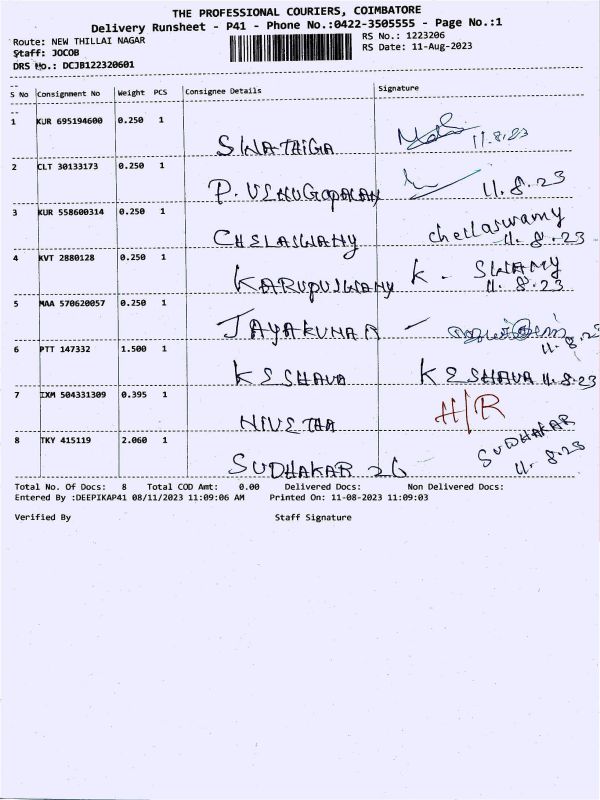 THE PROFESSIONAL COURIERS, COIMBATORE
Delivery Runsheet - P41 - Phone No.:0422-3505555 - Page No.:1
Route: NEW THILLAI NAGAR
RS No.: 1223206
Staff: JOCOB
RS Date: 11-Aug-2023
DRS No.: DCJB122320601
S No Consignment No Weight PCS Consignee Details Signature
1 KUR 695194600 0.250 1 SWATHIGA 11.8.23
2 CLT 30133173 0.250 1 P. VENUGOPALAN 11.8.23
3 KUR 558600314 0.250 1 CHELASWAMY chellaswamy
11.8.23
4 KVT 2880128 0.250 1 KARUPUSWAMY K. SWAMY
11.8.23
5 MAA 570620057 0.250 1 JAYAKUMAR
11.8.23
6 PTT 147332 1.500 1 KESHAVA KESHAVA 11.8.23
7 IXM 504331309 0.395 1 NIVETHA H/R
8 TKY 415119 2.060 1 SUDHAKAR 26 SUDHAKAR
11.8.23
Total No. Of Docs: 8 Total COD Amt: 0.00 Delivered Docs: Non Delivered Docs:
Entered By :DEEPIKAP41 08/11/2023 11:09:06 AM Printed On: 11-08-2023 11:09:03
Verified By Staff Signature